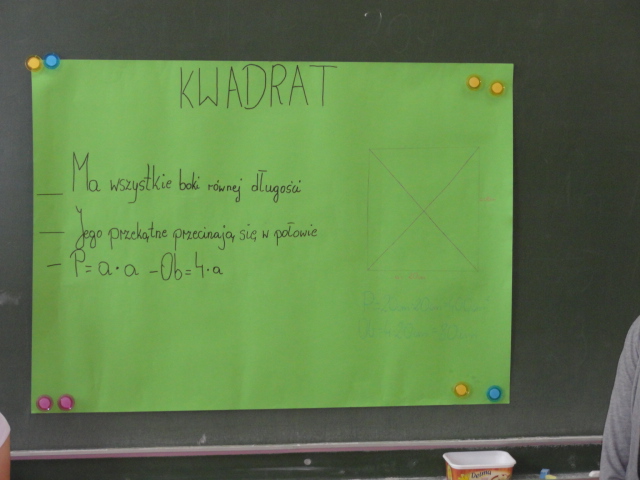 KWADRAT
— Ma wszystkie boki równej długości
— Jego przekątne przecinają się w połowie
— P = a · a – Ob = 4 · a
Delma